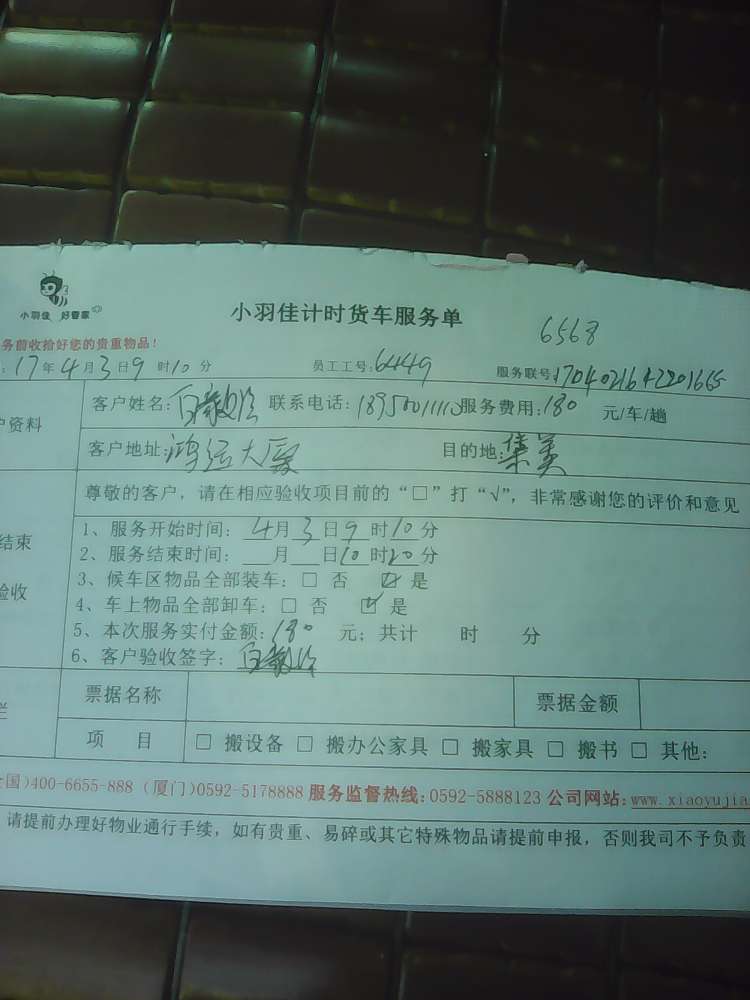 小羽佳 好管家
小羽佳计时货车服务单
6568
务前收拾好您的贵重物品！
: 17年4月3日9时10分 员工工号:6449 服务联号:
户资料
客户姓名: 联系电话: 服务费用:180 元/车/趟
客户地址:鸿运大厦 目的地:集美
尊敬的客户，请在相应验收项目前的“□”打“√”，非常感谢您的评价和意见
结束
验收
1、服务开始时间: 4月3日9时10分
2、服务结束时间: 月 日10时20分
3、候车区物品全部装车: □ 否 ☑ 是
4、车上物品全部卸车: □ 否 ☑ 是
5、本次服务实付金额:180 元; 共计 时 分
6、客户验收签字:
栏
票据名称 票据金额
项 目 □ 搬设备 □ 搬办公家具 □ 搬家具 □ 搬书 □ 其他:
全国)400-6655-888 (厦门)0592-5178888 服务监督热线:0592-5888123 公司网站:www.xiaoyujia
请提前办理好物业通行手续，如有贵重、易碎或其它特殊物品请提前申报，否则我司不予负责